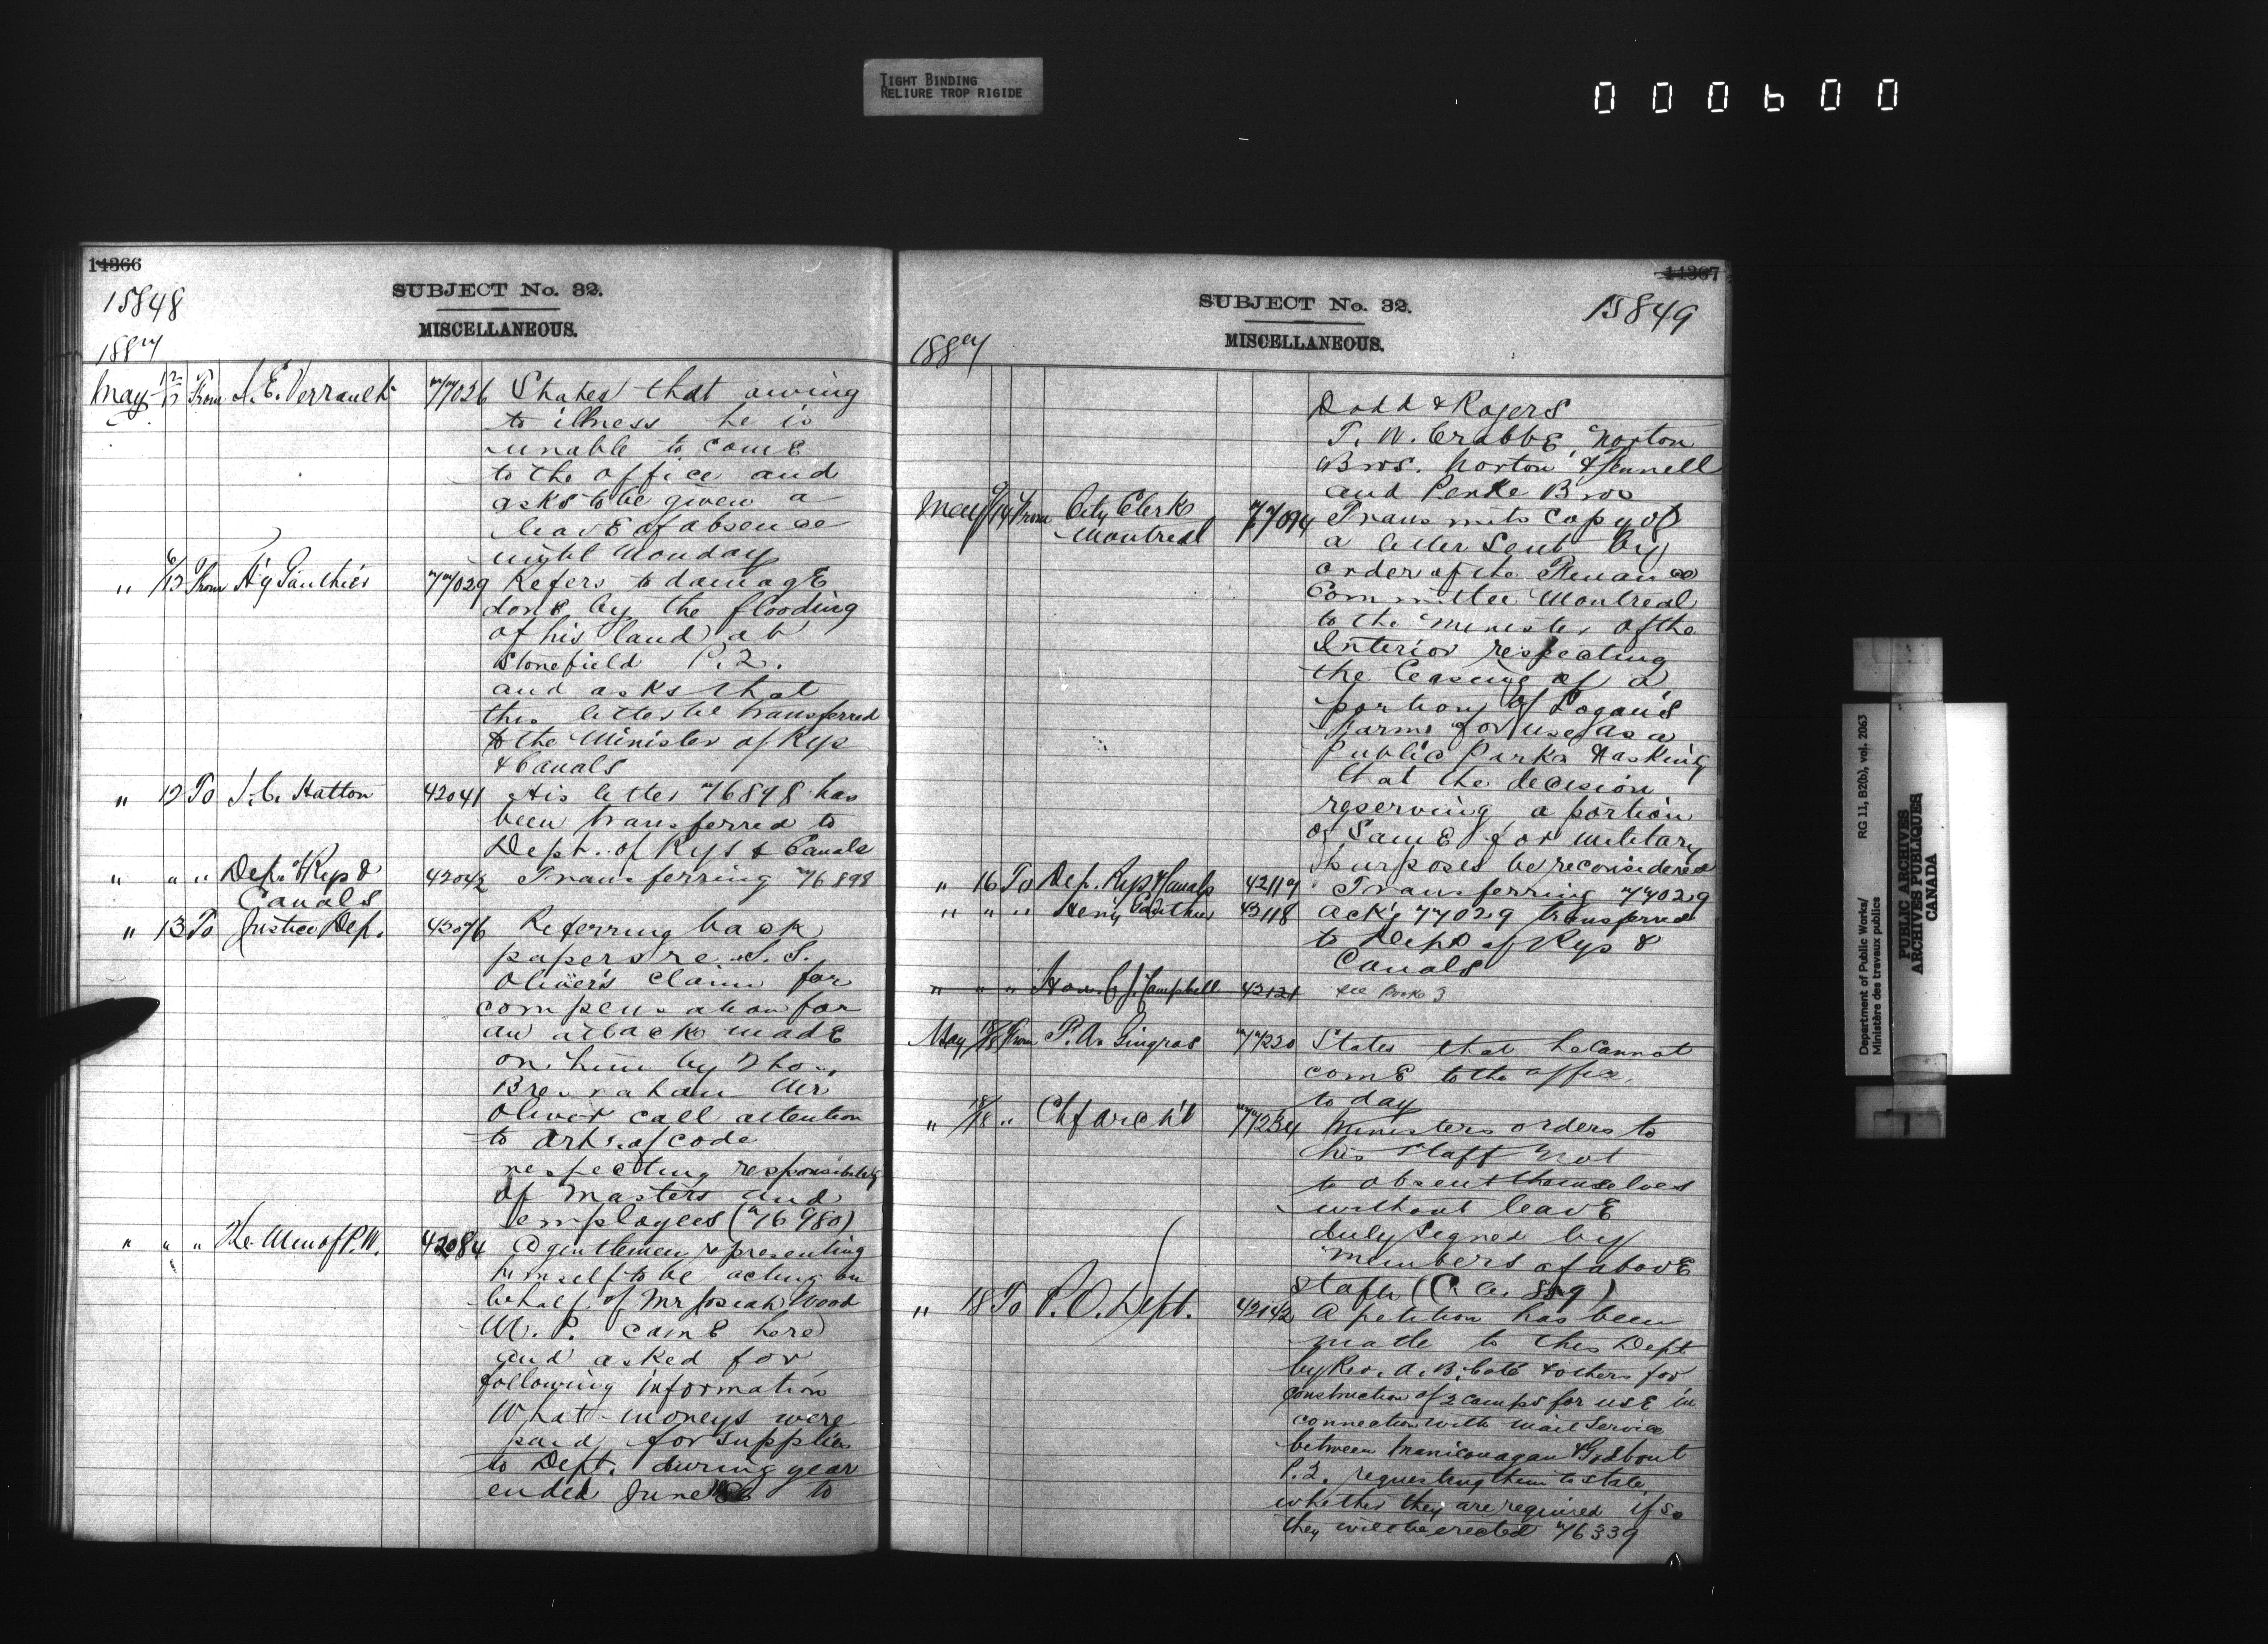 TIGHT BINDING
RELIURE TROP RIGIDE
000600
14366
15848
SUBJECT No. 32.
MISCELLANEOUS.
1887
May 12/12 From A. E. Verrault 77026 States that owing
to illness he is
unable to come
to the office and
asks to be given a
leave of absence
until Monday
" /13 From H'y Gauthier 77029 Refers to damage
done by the flooding
of his land at
Stonefield P.Q.
and asks that
this letter be transferred
to the Minister of Rys
& Canals
" 12 To J. C. Hatton 42041 His letter 76898 has
been transferred to
Dept. of Rys & Canals
" " " Dep. of Rys & 42042 Transferring 76898
Canals
" 13 To Justice Dep. 42076 Referring back
papers re S. S.
Oliver's claim for
compensation for
an attack made
on him by Thos.
Bresnahan Mr
Oliver call attention
to arts. of code
respecting responsibility
of Masters and
employees (76980)
" " " The Min of P. W. 42084 A gentlemen representing
himself to be acting on
behalf of Mr Josiah Wood
M. P. came here
and asked for
following information
What moneys were
paid for supplies
to Dept. during year
ended June 86 to
14367
SUBJECT No. 32.
15849
MISCELLANEOUS.
1887
Dodd & Rogers
T. W. Crabbe, Norton
Bros. Norton & Fennell
and Penke Bros
May /14 From City Clerk 77094 Transmits copy of
Montreal a letter sent by
order of the Finance
Committee Montreal
to the Minister of the
Interior respecting
the leasing of a
portion of Logan's
Farm for use as a
Public Park & asking
that the decision
reserving a portion
of same for military
purposes be reconsidered
" 16 To Dep. Rys & Canals 42117 Transferring 77029
" " " Henry Gauthier 42118 Ack'g 77029 transferred
to Dept of Rys &
Canals
" " " Hon. C. J. Campbell 42121 see Book 3
May 18/18 From P. A. Gingras 77220 States that he cannot
come to the office
to day
" 18/18 " Chf Arch't 77234 Ministers orders to
his staff not
to absent themselves
without leave
duly signed by
members of above
staff (C. A. 859)
" 18 To P. O. Dept. 42142 A petition has been
made to this Dept
by Rev. A. B. Coté & others for
construction of 2 camps for use in
connection with mail service
between Manicouagan & Godbout
P.Q. requesting them to state
whether they are required if so
they will be erected 76339
Department of Public Works/ RG 11, B2(b), vol. 2063
Ministère des travaux publics
PUBLIC ARCHIVES
ARCHIVES PUBLIQUES
CANADA